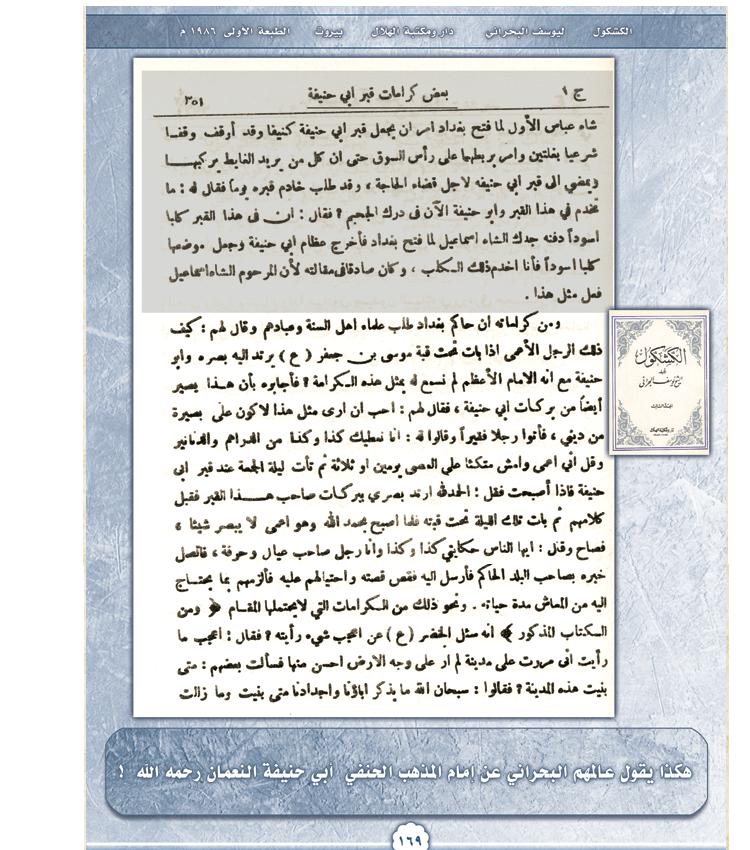 الكشكول ليوسف البحراني دار ومكتبة الهلال بيروت الطبعة الأولى ١٩٨٦ م
ج ١ بعض كرامات قبر ابي حنيفة ٣٥١
شاه عباس الأول لما فتح بغداد امر ان يجعل قبر ابي حنيفة كنيفا وقد أوقف وقفا
شرعيا بغلتين وامر بربطهما على رأس السوق حتى ان كل من يريد الغايط يركبهـا
ويمضي الى قبر ابي حنيفه لاجل قضاء الحاجة ، وقد طلب خادم قبره يوماً فقال له : ما
تخدم في هذا القبر وابو حنيفة الآن في درك الجحيم ? فقال : ان في هذا القبر كلبا
اسوداً دفنه جدك الشاه اسماعيل لما فتح بغداد فأخرج عظام ابي حنيفة وجعل موضعها
كلبا اسوداً فأنا اخدم ذلك الـكلب ، وكان صادقا في مقالته لأن المرحوم الشاه اسماعيل
فعل مثل هذا .
ومن كراماته ان حاكم بغداد طلب علماء اهل السنة وعبادهم وقال لهم : كيف
ذلك الرجل الأعمى اذا بات تحت قبة موسى بن جعفر ( ع ) يرتد اليه بصره وابو
حنيفة مع انه الامام الأعظم لم نسمع له بمثل هذه الـكرامة ? فأجابوه بأن هـذا يصير
أيضاً من بركات ابي حنيفة ، فقال لهم : احب ان ارى مثل هذا لاكون على بصيرة
من ديني ، فأتوا رجلا فقيراً وقالوا له : انا نعطيك كذا وكذا من الدراهم والدنانير
وقل اني اعمى وامش متكئا على العصى يومين او ثلاثة ثم تأت ليلة الجمعة عند قبر ابي
حنيفة فاذا أصبحت فقل : الحمدلله ارتد بصري ببركات صاحب هـــذا القبر فقبل
كلامهم ثم بات تلك الليلة تحت قبته فلما اصبح بحمد الله وهو اعمى لا يبصر شيئا ،
فصاح وقال : ايها الناس حكايتي كذا وكذا وانا رجل صاحب عيال وحرفة ، فاتصل
خبره بصاحب البلد الحاكم فأرسل اليه فقص قصته واحتيالهم عليه فألزمهم بما يحتـاج
اليه من المعاش مدة حياته . ونحو ذلك من الـكرامات التي لايحتملها المقـام ﴿ ومن
الـكتاب المذكور ﴾ انه سئل الخضر ( ع ) عن اعجب شيء رأيته ? فقال : اعجب ما
رأيت اني مررت على مدينة لم ار على وجه الارض احسن منها فسألت بعضهم : متى
بنيت هذه المدينة ? فقالوا : سبحان الله ما يذكر اباؤنا واجدادنا متى بنيت وما زالت
الكشكول
هكذا يقول عالمهم البحراني عن إمام المذهب الحنفي أبي حنيفة النعمان رحمه الله !
١٦٩